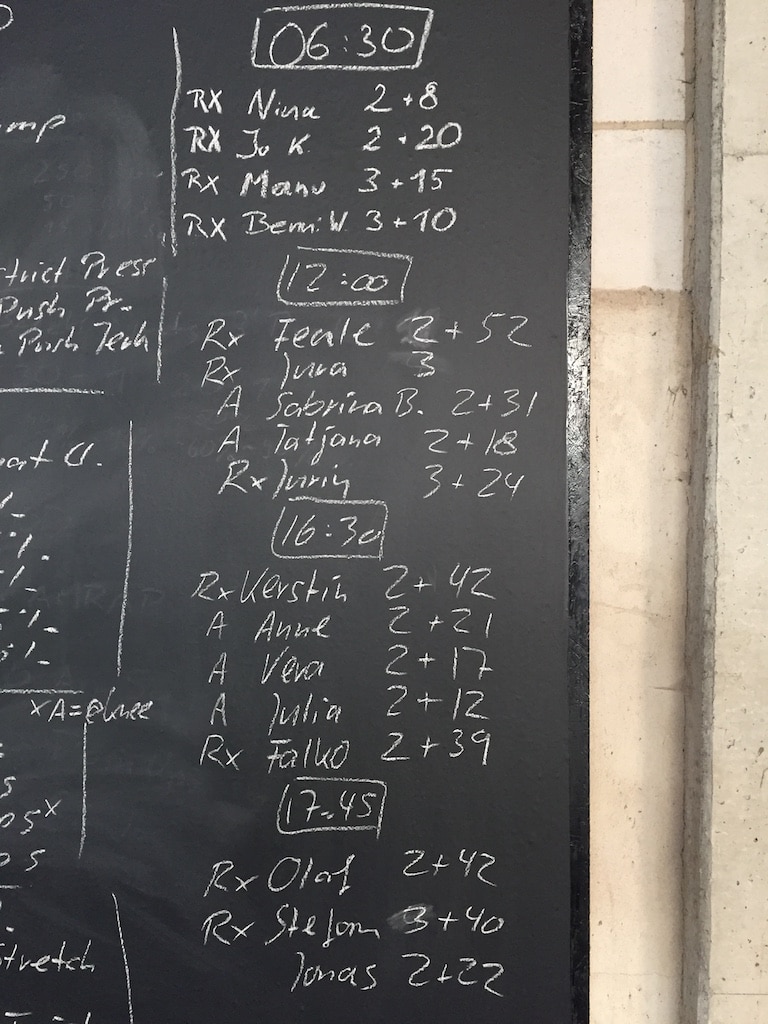 06:30
RX Nina 2+8
RX Jo K. 2+20
RX Manu 3+15
RX Berni W. 3+10
12:00
Rx Feale 2+52
Rx Jura 3
A Sabrina B. 2+31
A Tatjana 2+18
Rx 3+24
16:30
Rx Kerstin 2+42
A Anne 2+21
A Vera 2+17
A Julia 2+12
Rx Falko 2+39
17.45
Rx Olaf 2+42
Rx Stefan 3+40
Jonas 2+22
trict Press
Push Pr.
Push Tech
xA=@knee
Stretch